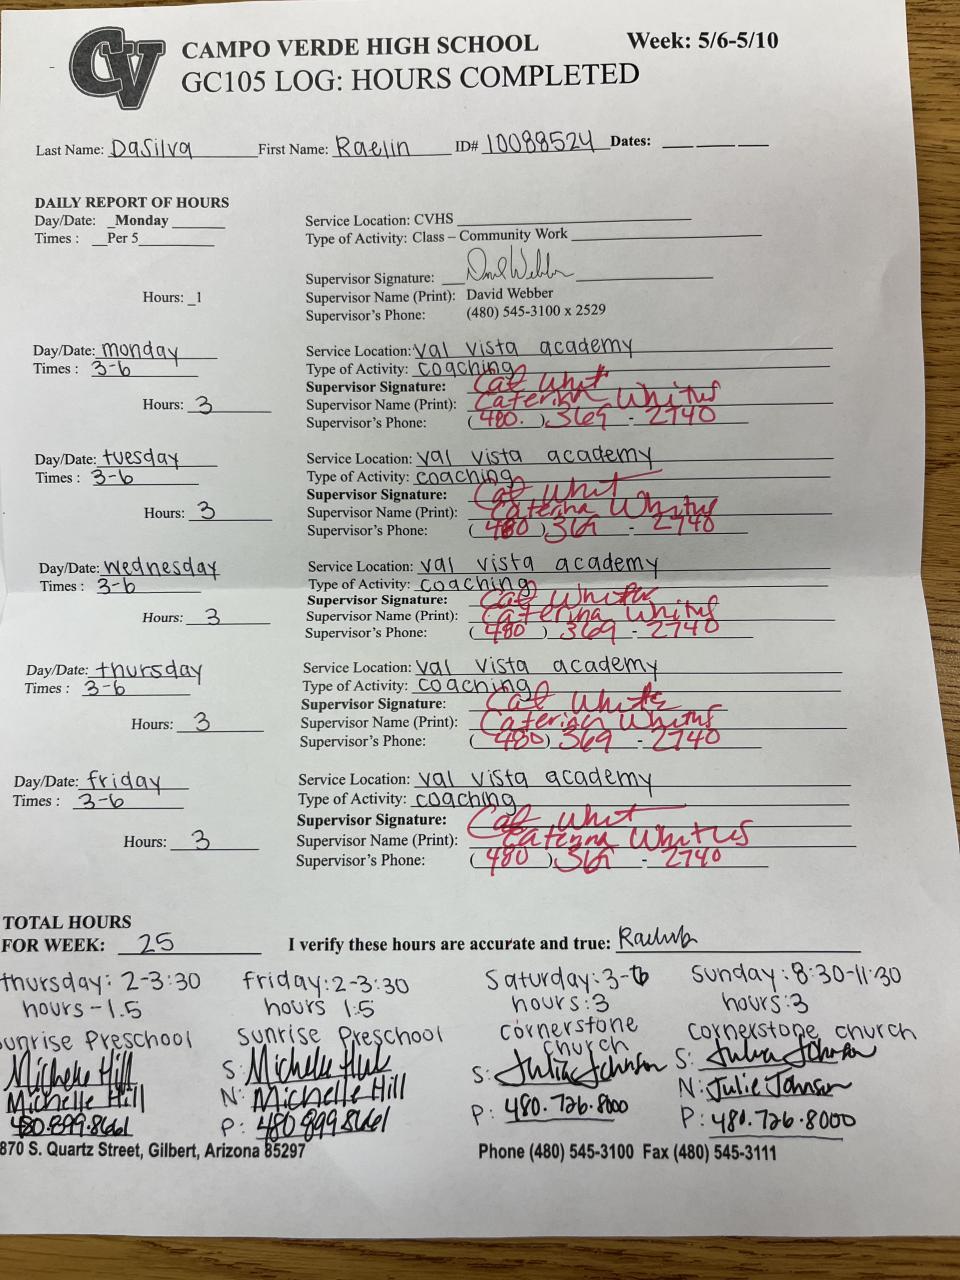 CV
CAMPO VERDE HIGH SCHOOL Week: 5/6-5/10
GC105 LOG: HOURS COMPLETED
Last Name: DaSilva First Name: Raelin ID# 10088524 Dates:
DAILY REPORT OF HOURS
Day/Date: Monday Service Location: CVHS
Times : Per 5 Type of Activity: Class – Community Work
Supervisor Signature: David Webber
Hours: 1 Supervisor Name (Print): David Webber
Supervisor's Phone: (480) 545-3100 x 2529
Day/Date: monday Service Location: val vista academy
Times : 3-6 Type of Activity: coaching
Supervisor Signature: Cat Whit
Hours: 3 Supervisor Name (Print): Caterina Whitus
Supervisor's Phone: (480.) 369 - 2740
Day/Date: tuesday Service Location: val vista academy
Times : 3-6 Type of Activity: coaching
Supervisor Signature: Cat Whit
Hours: 3 Supervisor Name (Print): Caterina Whitus
Supervisor's Phone: (480) 369 - 2740
Day/Date: wednesday Service Location: val vista academy
Times : 3-6 Type of Activity: coaching
Supervisor Signature: Cat
Hours: 3 Supervisor Name (Print): Caterina Whitus
Supervisor's Phone: (480) 369 - 2740
Day/Date: thursday Service Location: val vista academy
Times : 3-6 Type of Activity: coaching
Supervisor Signature: Cat
Hours: 3 Supervisor Name (Print): Caterina Whitus
Supervisor's Phone: (480) 369 - 2740
Day/Date: friday Service Location: val vista academy
Times : 3-6 Type of Activity: coaching
Supervisor Signature: Cat Whit
Hours: 3 Supervisor Name (Print): Caterina Whitus
Supervisor's Phone: (480) 369 - 2740
TOTAL HOURS
FOR WEEK: 25 I verify these hours are accurate and true:
thursday: 2-3:30
hours - 1.5
sunrise Preschool
Michelle Hill
Michelle Hill
480.899.8661
friday: 2-3:30
hours 1.5
sunrise Preschool
S: Michelle Hill
N: Michelle Hill
P: 480 899 8661
Saturday: 3-6
hours: 3
cornerstone
church
S: Julia Johnson
P: 480.726.8000
Sunday: 8:30-11:30
hours: 3
cornerstone church
S: Julia Johnson
N: Julie Johnson
P: 480.726.8000
870 S. Quartz Street, Gilbert, Arizona 85297 Phone (480) 545-3100 Fax (480) 545-3111